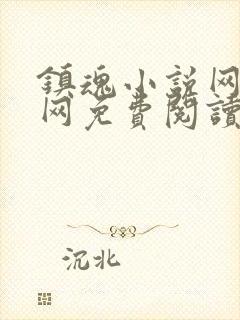 鎮魂小说网
网免費閱讀
沉北